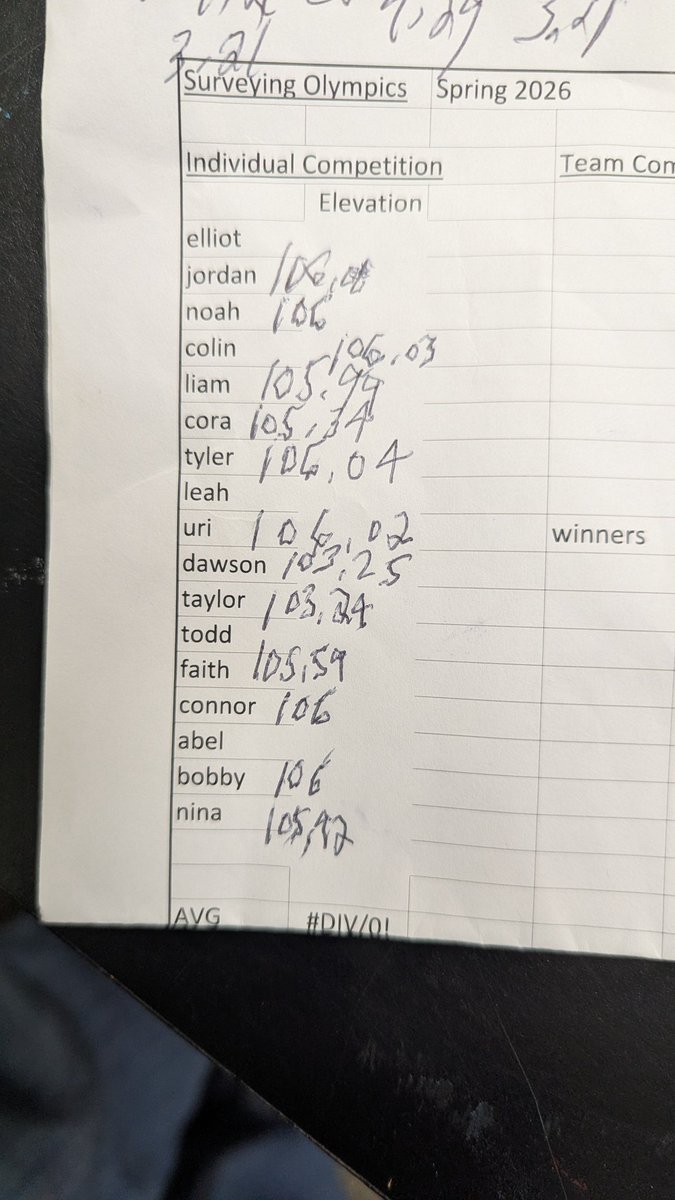 4,29 3,21
3,21
Surveying Olympics Spring 2026
Individual Competition Team Com
Elevation
elliot
jordan
noah 106
colin 106.03
liam 105.99
cora 105,34
tyler 106,04
leah
uri 106,02 winners
dawson 103,25
taylor 103,24
todd
faith 105,59
connor 106
abel
bobby 106
nina
AVG #DIV/0!